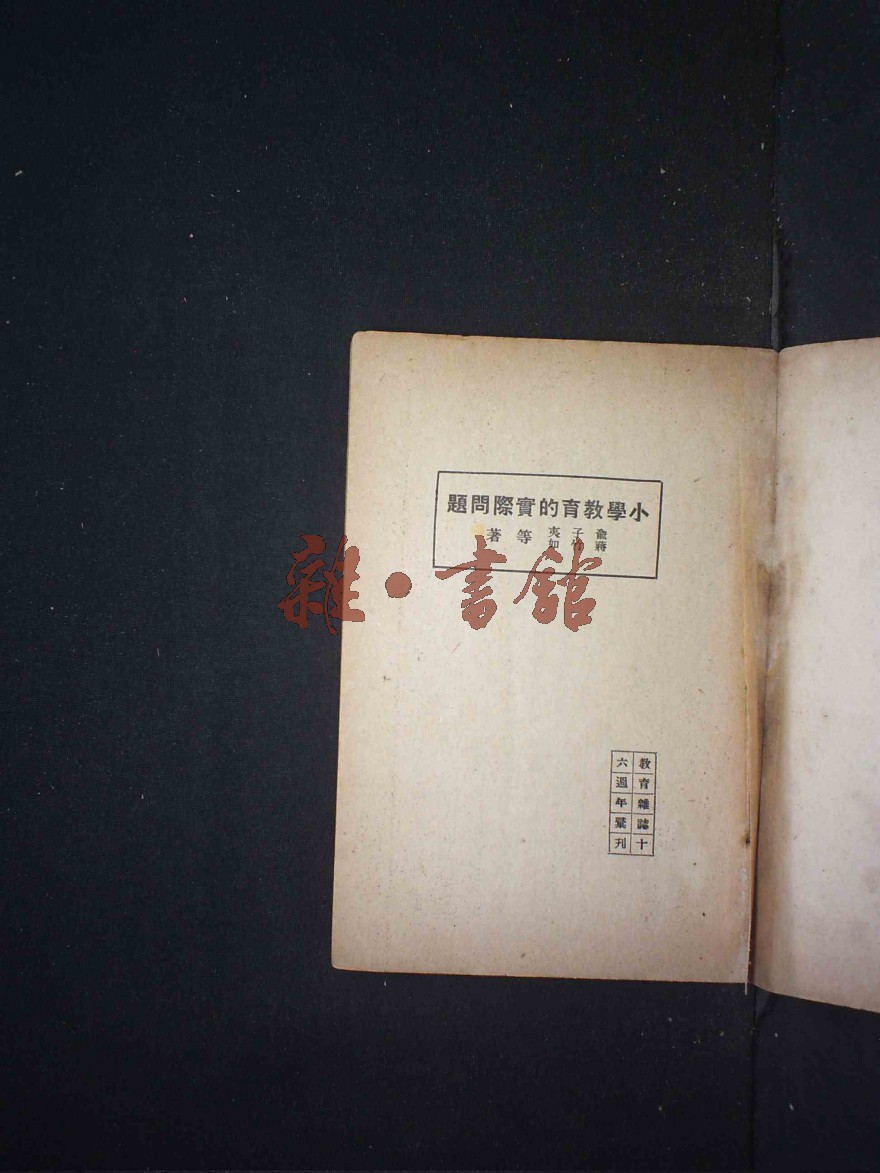 小學教育的實際問題
兪子夷
蔣竹如
等著
雜·書館
教育雜誌十
六週年彙刊